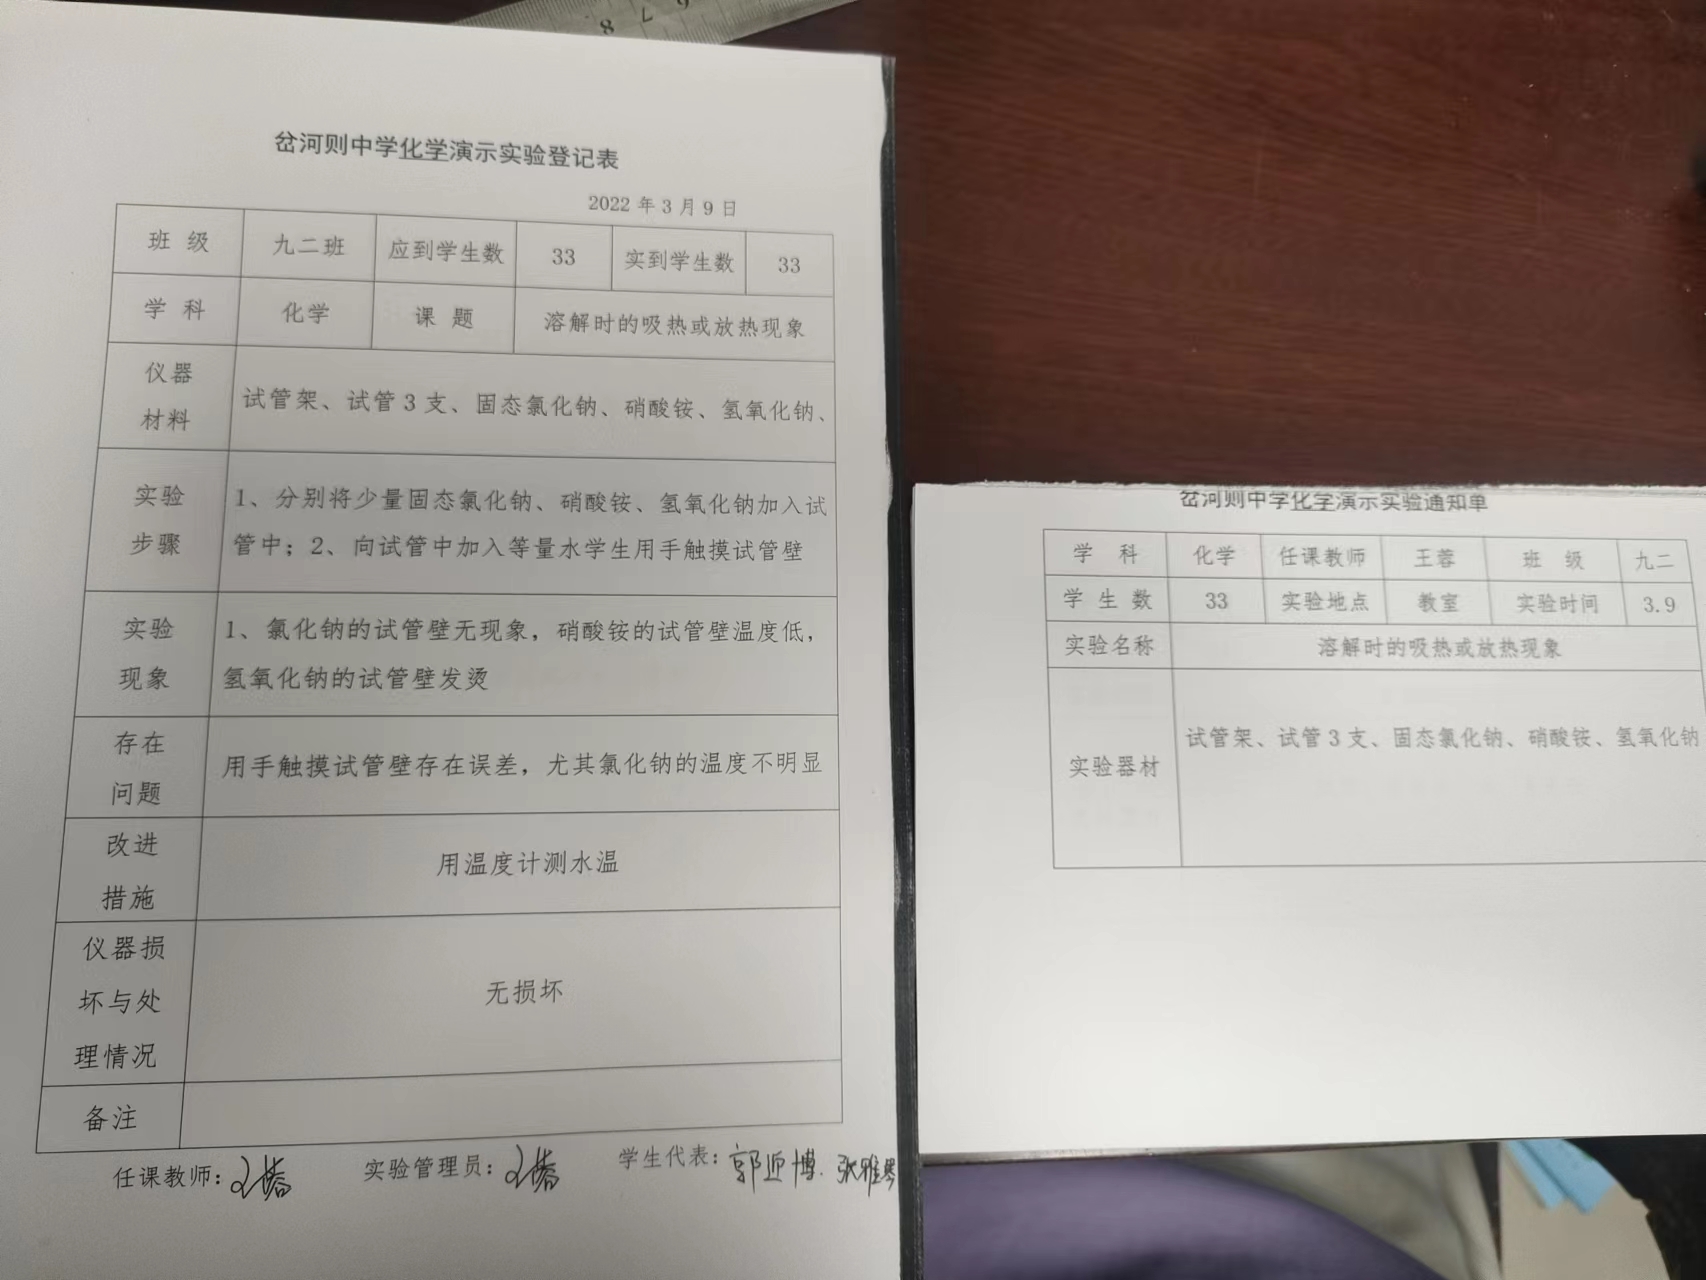 8 7 6
岔河则中学化学演示实验登记表
2022 年 3 月 9 日
班 级 九二班 应到学生数 33 实到学生数 33
学 科 化学 课 题 溶解时的吸热或放热现象
仪器
材料
试管架、试管 3 支、固态氯化钠、硝酸铵、氢氧化钠、
实验
步骤
1、分别将少量固态氯化钠、硝酸铵、氢氧化钠加入试
管中；2、向试管中加入等量水学生用手触摸试管壁
实验
现象
1、氯化钠的试管壁无现象，硝酸铵的试管壁温度低，
氢氧化钠的试管壁发烫
存在
问题
用手触摸试管壁存在误差，尤其氯化钠的温度不明显
改进
措施
用温度计测水温
仪器损
坏与处
理情况
无损坏
备注
任课教师： 实验管理员： 学生代表：
岔河则中学化学演示实验通知单
学 科 化学 任课教师 王蓉 班 级 九二
学 生 数 33 实验地点 教室 实验时间 3.9
实验名称 溶解时的吸热或放热现象
实验器材 试管架、试管 3 支、固态氯化钠、硝酸铵、氢氧化钠